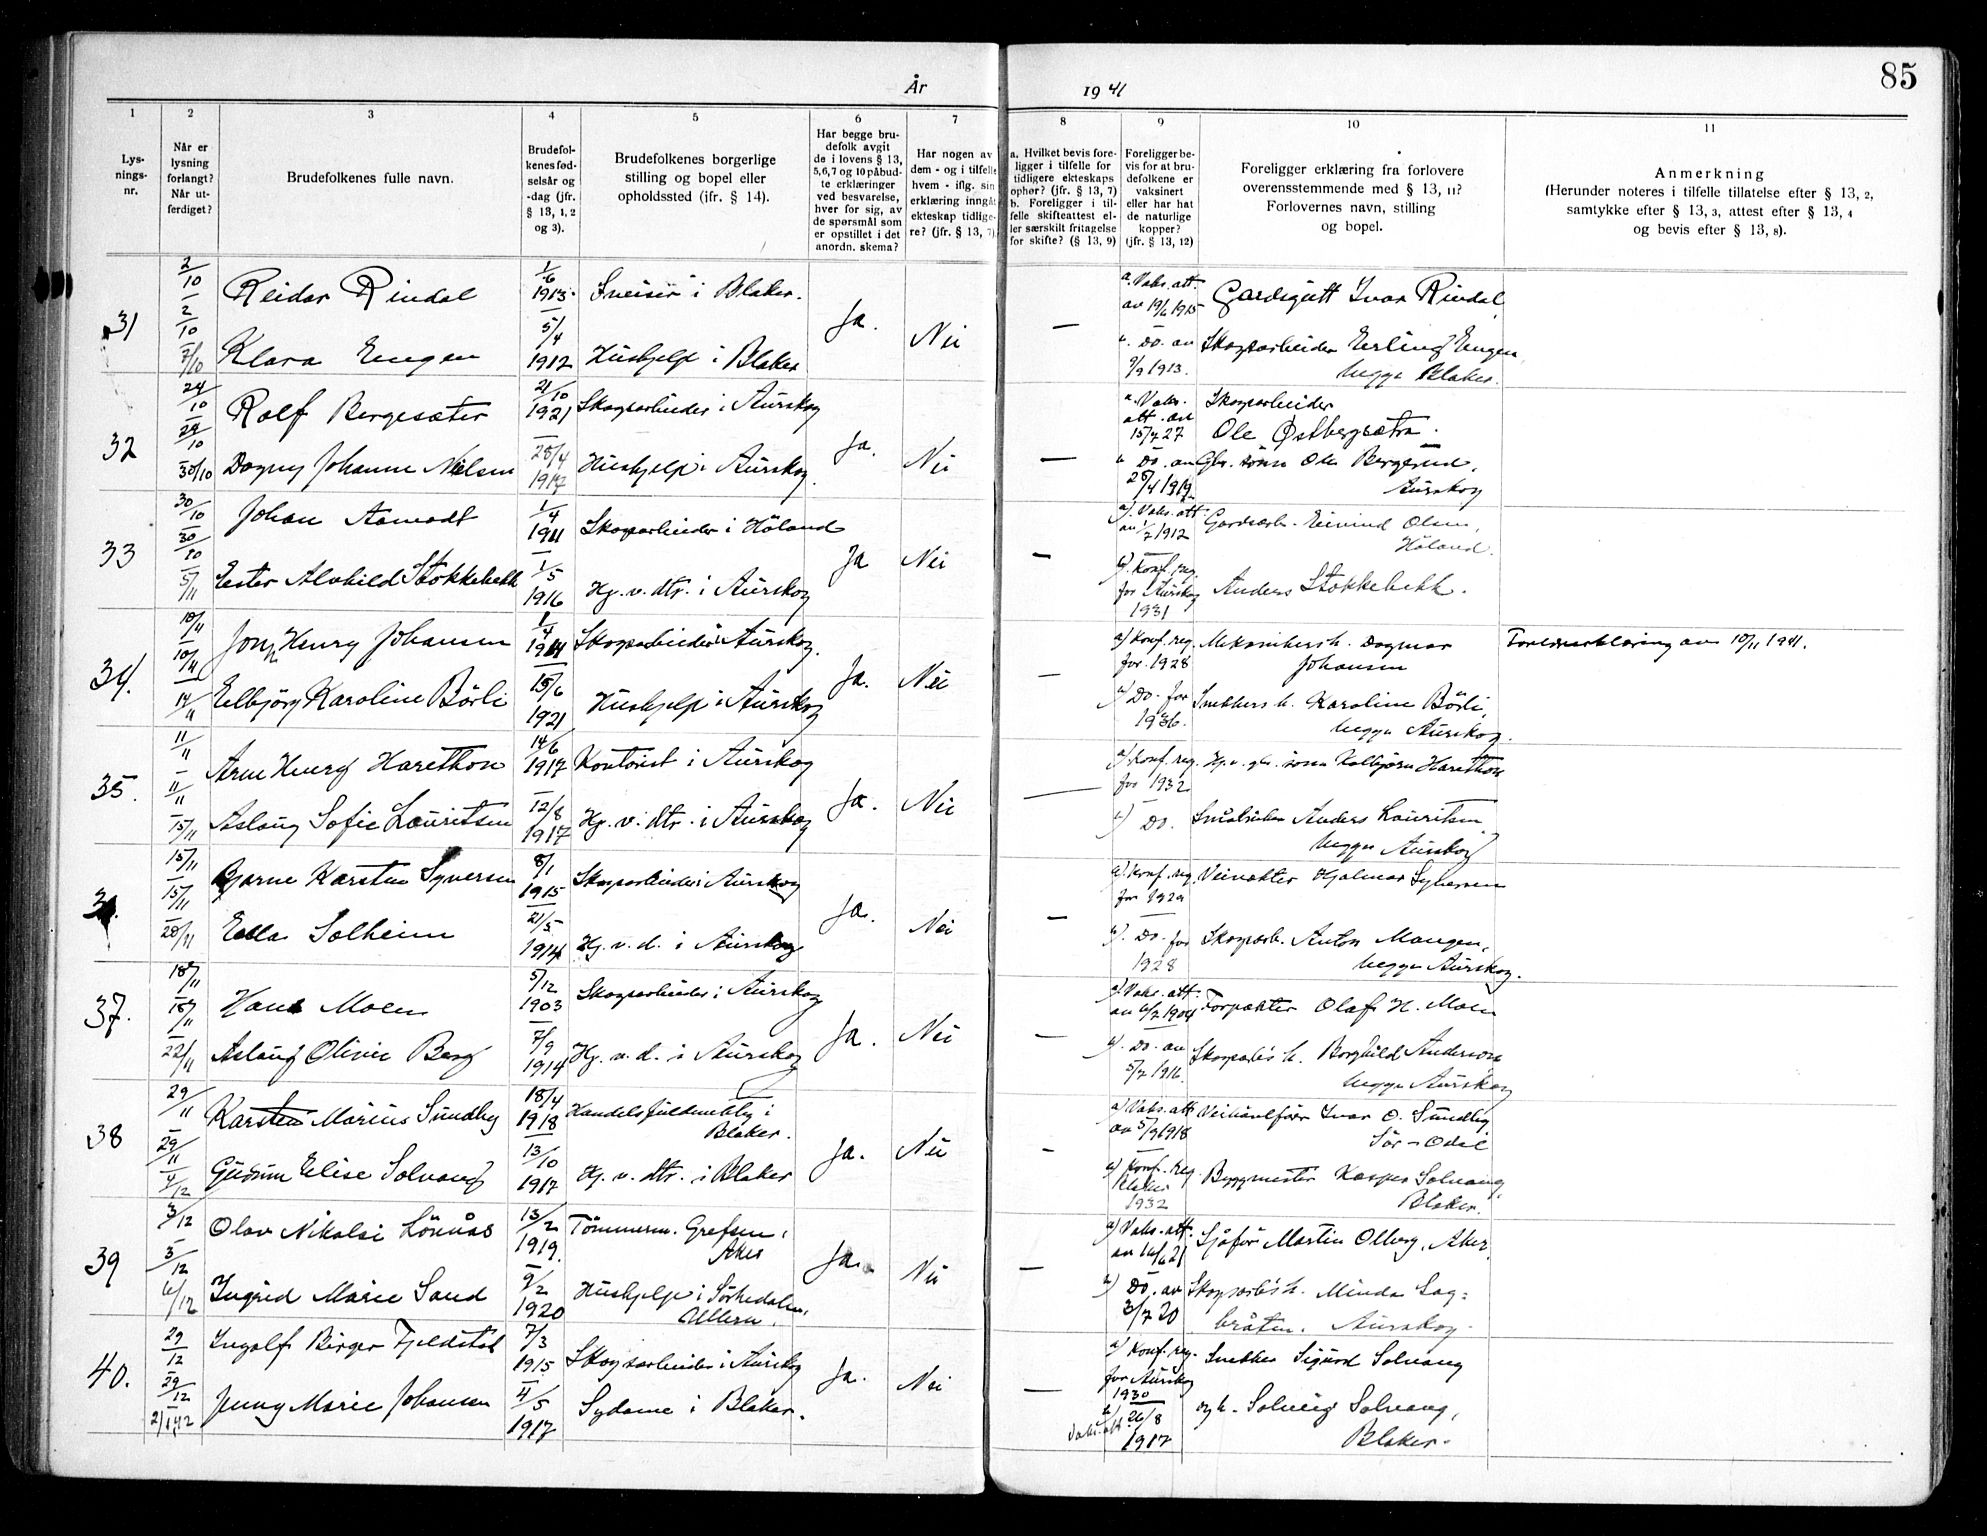 År 1941
85
1
Lys-
nings-
nr.
2
Når er
lysning
forlangt?
Når ut-
ferdiget?
3
Brudefolkenes fulle navn.
4
Brudefol-
kenes fød-
selsår og
-dag (jfr.
§ 13, 1, 2
og 3).
5
Brudefolkenes borgerlige
stilling og bopel eller
opholdssted (jfr. § 14).
6
Har begge bru-
defolk avgit
de i lovens § 13,
5,6,7 og 10 påbud-
te erklæringer
ved besvarelse,
hver for sig, av
de spørsmål som
er opstillet i det
anordn. skema?
7
Har nogen av
dem - og i tilfelle
hvem - iflg. sin
erklæring inngåt
ekteskap tidlige-
re? (jfr. § 13, 7)
8
a. Hvilket bevis fore-
ligger i tilfelle for
tidligere ekteskaps
ophør? (jfr. § 13, 7)
b. Foreligger i til-
felle skifteattest el-
ler særskilt fritagelse
for skifte? (§ 13, 9)
9
Foreligger be-
vis for at bru-
defolkene er
vaksinert
eller har hat
de naturlige
kopper?
(jfr. § 13, 12)
10
Foreligger erklæring fra forlovere
overensstemmende med § 13, 11?
Forlovernes navn, stilling
og bopel.
11
Anmerkning
(Herunder noteres i tilfelle tillatelse efter § 13, 2,
samtykke efter § 13, 3, attest efter § 13, 4
og bevis efter § 13, 8).
31
2/10
2/10
7/10
Reidar Rindal
1/6
1913
Sveiser i Blaker.
Klara Engen
5/4
1912
Hushjelp i Blaker
Ja.
Nei
—
a. Vaks. att.
av 19/6 1915
Gardsgutt Ivar Rindal,
Do. av
9/9 1913.
Skogsarbeider Erling Engen
begge Blaker.
32
24/10
29/10
30/10
Rolf Bergesæter
21/10
1921
Skogsarbeider i Aurskog
Dagny Johanne Nielsen
28/4
1917
Hushjelp i Aurskog.
Ja.
Nei
—
a. Vaks.
att. av
15/7 27
Skogsarbeider
Ole Østbergsætra.
Do. av
28/4 1919
Gbr. sønn Ole Bergerud,
Aurskog
33
30/10
30/10
5/11
Johan Aamodt
1/4
1911
Skogsarbeider i Höland
Ester Alvhild Stokkebekk
1/5
1916
Hj. v. dtr. i Aurskog
Ja
Nei
—
a). Vaks. att.
av 1/2 1912
Gardsarb. Eivind Olsen,
Höland.
Konf. reg
for Aurskog
1931
Anders Stokkebekk.
34.
10/11
10/11
14/11
John Henry Johansen
1/4
1914
Skogsarbeider i Aurskog.
Elbjörg Karoline Börli
15/6
1921
Hushjelp i Aurskog
Ja.
Nei
—
a) Konf. reg.
for 1928
Mekanikers h. Dagmar
Johansen
Foreldreerklæring av 10/11 1941.
Do. for
1936.
Snekkers h. Karoline Börli,
begge Aurskog.
35.
11/11
11/11
15/11
Arne Henry Harethon
14/6
1917
Kontorist i Aurskog
Aslaug Sofie Lauritsen
12/8
1917
Hj. v. dtr. i Aurskog
Ja.
Nei
—
a) Konf. reg.
for 1932
Hj. v. gbr. sønn Kolbjørn Harethon
Do.
Småbruker Anders Lauritsen
begge Aurskog
15/11
15/11
20/11
Bjarne Karsten Syversen
8/1
1915
Skogsarbeider i Aurskog
Ella Solheim
21/5
1914
Hj. v. d. i Aurskog
Ja.
Nei
—
a). Konf. reg.
for 1929
Veivokter Hjalmar Syversen
Do. for
1928
Skogsarb. Anton Mangen,
begge Aurskog.
37.
18/11
18/11
22/11
Hans Moen
5/12
1903
Skogsarbeider i Aurskog
Aslaug Olivie Berg
7/9
1914
Hj. v. d. i Aurskog
Ja.
Nei
—
a). Vaks. att.
av 6/7 1904
Forpakter Olaf H. Moen
Do. av
5/7 1916.
Skogsarb's h. Borghild Anderson
begge Aurskog
38
29/11
29/11
4/12
Karsten Marius Sundby
18/4
1918
Handelsfuldmektig i
Blaker.
Gudrun Elise Solvang
13/10
1917
Hj. v. dtr. i Blaker
Ja.
Nei
-
a) Vaks. att
av 5/9 1918
Ivar O. Sundby
Sör-Odal
Konf. reg
Blaker
1932
Byggmester Kasper Solvang,
Blaker.
39
3/12
3/12
6/12
Olav Nikolai Lönnås
13/2
1919.
Tömmerm. Grefsen,
Aker
Ingrid Marie Sand
9/2
1920
Hushjelp i Sörkedalen,
Ullern.
Ja.
Nei
—
a) Vaks. att.
av 16/6 21
Sjåför Martin Olberg, Aker.
Do. av
3/7 20
Skogsarb's h. Minda Sag=
bråten. Aurskog.
40.
29/12
29/12
2/1 42
Ingolf Birger Fjeldstad
7/3
1915
Skogsarbeider i Aurskog
Jenny Marie Johansen
4/5
1917
Sydame i Blaker.
Ja.
Nei
—
a) Konf. reg.
for Aurskog
1930
Snekker Sigurd Solvang
Vaks. att
26/8
1917
og h. Solveig Solvang,
Blaker.